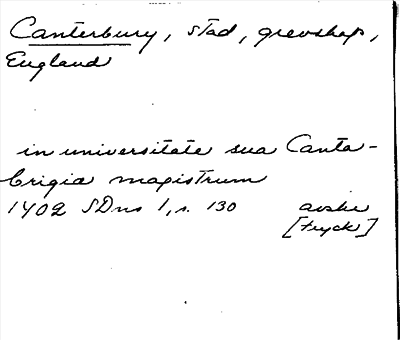 Canterbury, stad, grevskap,
England
in universitate sua Canta-
brigia magistrum
1402 SDns 1, s. 130 avskr
[tryck]